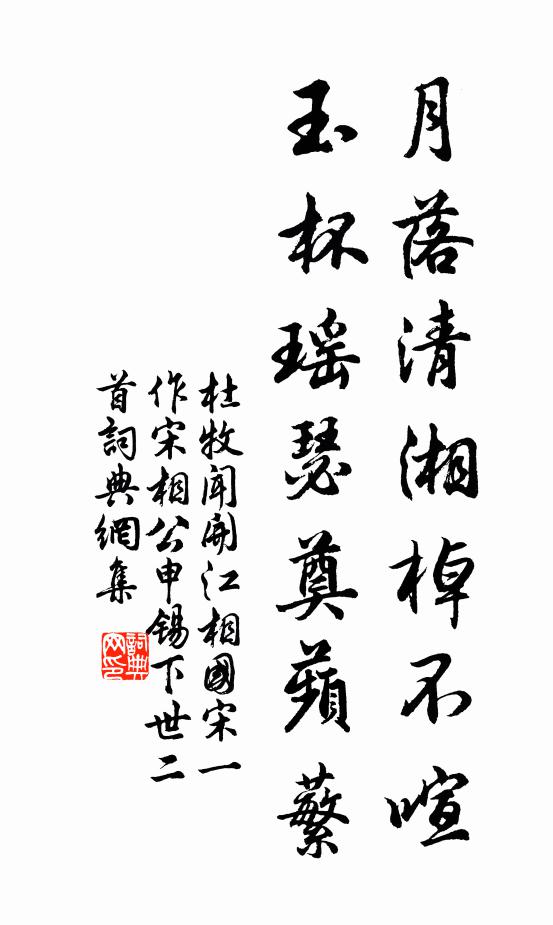 月落清湘棹不喧
玉杯瑤瑟奠蘋蘩
杜牧聞開江相國宋一
作宋相公申錫下世二
首詞典網集
詞典网印